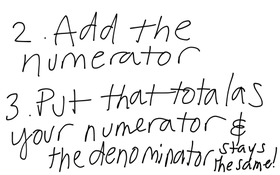 2. Add the
numerator
3. Put that total as
your numerator &
the denominator stays
the same!